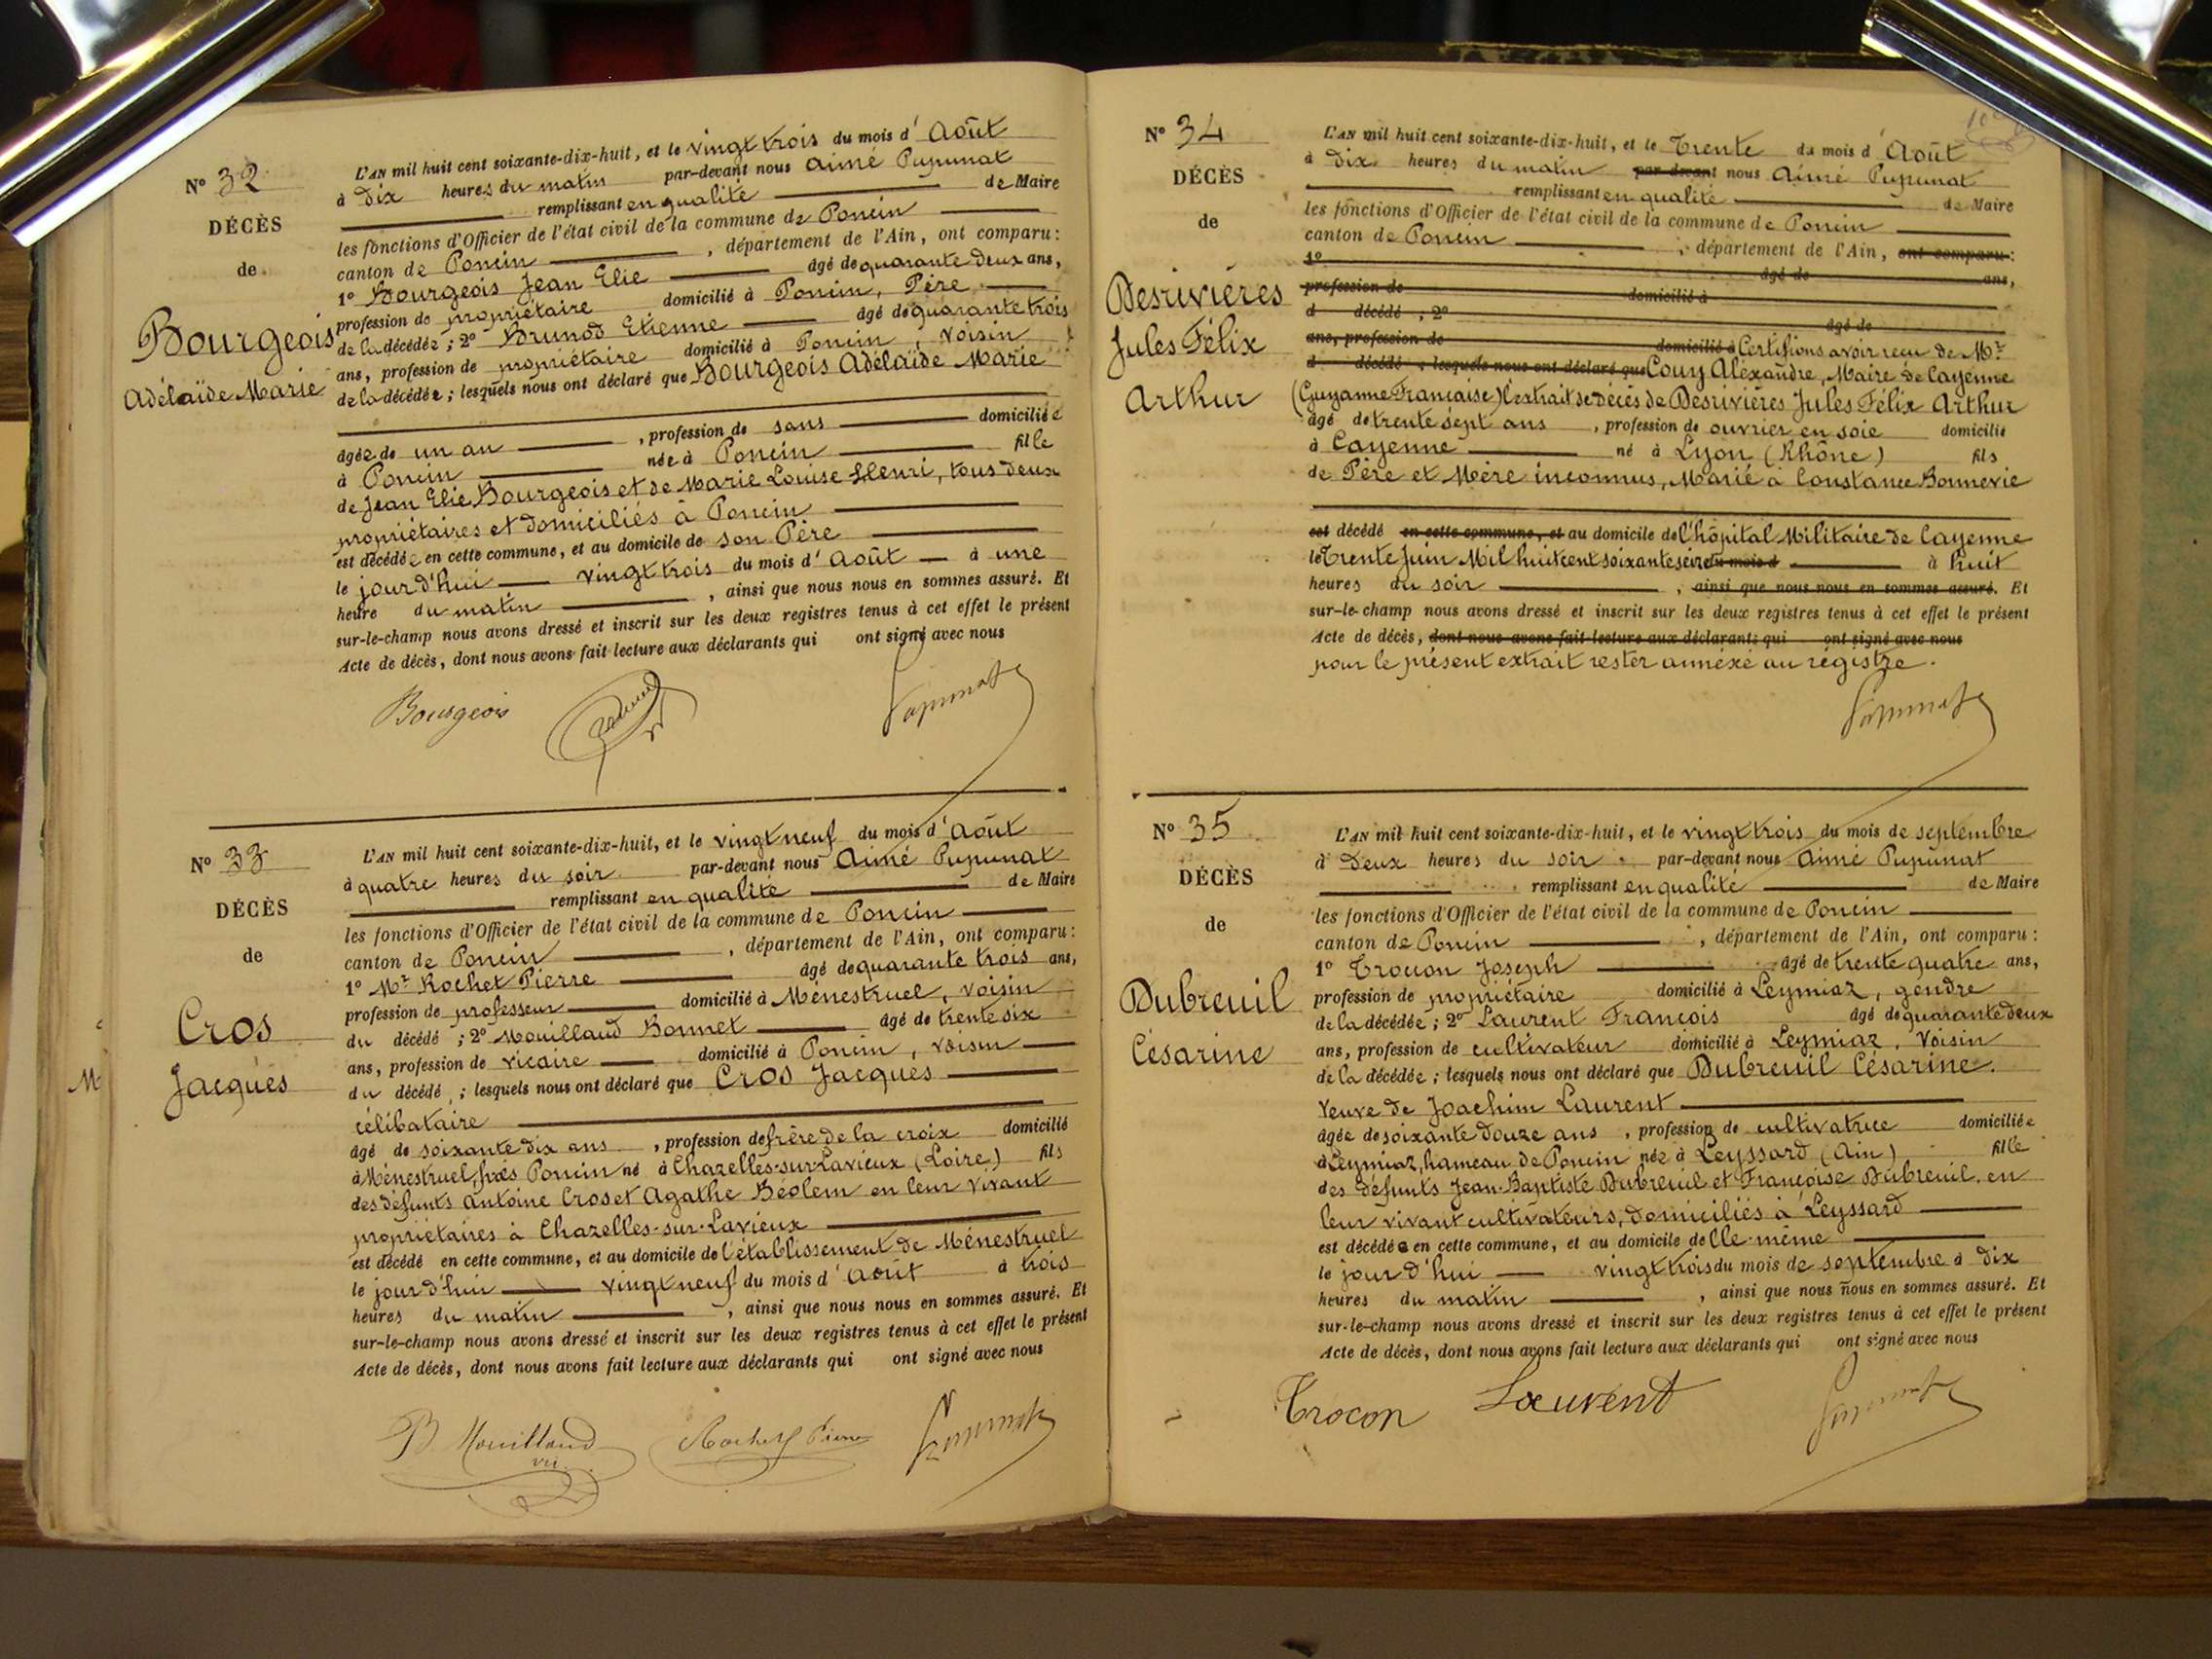 N° 32
DÉCÈS
de
Bourgeois
Adélaïde Marie
L'AN mil huit cent soixante-dix-huit, et le vingt trois du mois d'Août
à Dix heures du matin par-devant nous Aimé Pupunat
remplissant en qualité de Maire
les fonctions d'Officier de l'état civil de la commune de Poncin
canton de Poncin , département de l'Ain, ont comparu :
1° Bourgeois Jean Elie âgé de quarante deux ans,
profession de propriétaire domicilié à Poncin, Père
de la décédée ; 2° Brunod Etienne âgé de quarante trois
ans, profession de propriétaire domicilié à Poncin, Voisin
de la décédée ; lesquels nous ont déclaré que Bourgeois Adélaïde Marie
âgée de un an , profession de sans domiciliée
à Poncin née à Poncin fille
de Jean Elie Bourgeois et de Marie Louise Henri, tous deux
propriétaires et domiciliés à Poncin
est décédée en cette commune, et au domicile de son Père
le jourd'hui vingt trois du mois d'Août à une
heure du matin , ainsi que nous nous en sommes assuré. Et
sur-le-champ nous avons dressé et inscrit sur les deux registres tenus à cet effet le présent
Acte de décès, dont nous avons fait lecture aux déclarants qui ont signé avec nous
Bourgeois Brunod Pupunat
N° 33
DÉCÈS
de
Cros
Jacques
L'AN mil huit cent soixante-dix-huit, et le vingt neuf du mois d'Août
à quatre heures du soir par-devant nous Aimé Pupunat
remplissant en qualité de Maire
les fonctions d'Officier de l'état civil de la commune de Poncin
canton de Poncin , département de l'Ain, ont comparu :
1° Mr Rochet Pierre âgé de quarante trois ans,
profession de professeur domicilié à Ménestruel, voisin
du décédé ; 2° Mouillaud Bonnet âgé de trente six
ans, profession de vicaire domicilié à Poncin, voisin
du décédé ; lesquels nous ont déclaré que Cros Jacques
célibataire
âgé de soixante dix ans , profession de frère de la croix domicilié
à Ménestruel, près Poncin né à Chazelles-sur-Lavieux (Loire) fils
des défunts Antoine Cros et Agathe Béolem en leur vivant
propriétaires à Chazelles-sur-Lavieux
est décédé en cette commune, et au domicile de l'établissement de Ménestruel
le jourd'hui vingt neuf du mois d'Août à trois
heures du matin , ainsi que nous nous en sommes assuré. Et
sur-le-champ nous avons dressé et inscrit sur les deux registres tenus à cet effet le présent
Acte de décès, dont nous avons fait lecture aux déclarants qui ont signé avec nous
B Mouillaud Rochet Pierre Pupunat
vic.
N° 34
DÉCÈS
de
Desrivières
Jules Félix
Arthur
L'AN mil huit cent soixante-dix-huit, et le Trente du mois d'Août
à Dix heures du matin par-devant nous Aimé Pupunat
remplissant en qualité de Maire
les fonctions d'Officier de l'état civil de la commune de Poncin
canton de Poncin , département de l'Ain, ont comparu :
1° âgé de ans,
profession de domicilié à
d décédé ; 2° âgé de
ans, profession de domicilié à Certifions avoir reçu de Mr
d décédé ; lesquels nous ont déclaré que Couy Alexandre, Maire de Cayenne
(Guyanne Française) l'extrait de décès de Desrivières Jules Félix Arthur
âgé de trente sept ans , profession de ouvrier en soie domicilié
à Cayenne né à Lyon (Rhône) fils
de Père et Mère inconnus, Marié à Constance Bonnevie
est décédé en cette commune, et au domicile de l'hôpital Militaire de Cayenne
le Trente Juin Mil huit cent soixante seize du mois d à huit
heures du soir , ainsi que nous nous en sommes assuré. Et
sur-le-champ nous avons dressé et inscrit sur les deux registres tenus à cet effet le présent
Acte de décès, dont nous avons fait lecture aux déclarants qui ont signé avec nous
pour le présent extrait rester annéxé au régistre.
Pupunat
N° 35
DÉCÈS
de
Dubreuil
Césarine
L'AN mil huit cent soixante-dix-huit, et le vingt trois du mois de septembre
à Deux heures du soir par-devant nous Aimé Pupunat
remplissant en qualité de Maire
les fonctions d'Officier de l'état civil de la commune de Poncin
canton de Poncin , département de l'Ain, ont comparu :
1° Trocon Joseph âgé de trente quatre ans,
profession de propriétaire domicilié à Leymiaz, gendre
de la décédée ; 2° Laurent François âgé de quarante deux
ans, profession de cultivateur domicilié à Leymiaz, Voisin
de la décédée ; lesquels nous ont déclaré que Dubreuil Césarine.
Veuve de Joachim Laurent
âgée de soixante douze ans , profession de cultivatrice domiciliée
à Leymiaz, hameau de Poncin née à Leyssard (Ain) fille
des défunts Jean-Baptiste Dubreuil et Françoise Dubreuil, en
leur vivant cultivateurs, domiciliés à Leyssard
est décédée en cette commune, et au domicile d'elle-même
le jourd'hui vingt trois du mois de septembre à dix
heures du matin , ainsi que nous nous en sommes assuré. Et
sur-le-champ nous avons dressé et inscrit sur les deux registres tenus à cet effet le présent
Acte de décès, dont nous avons fait lecture aux déclarants qui ont signé avec nous
Trocon Laurent Pupunat